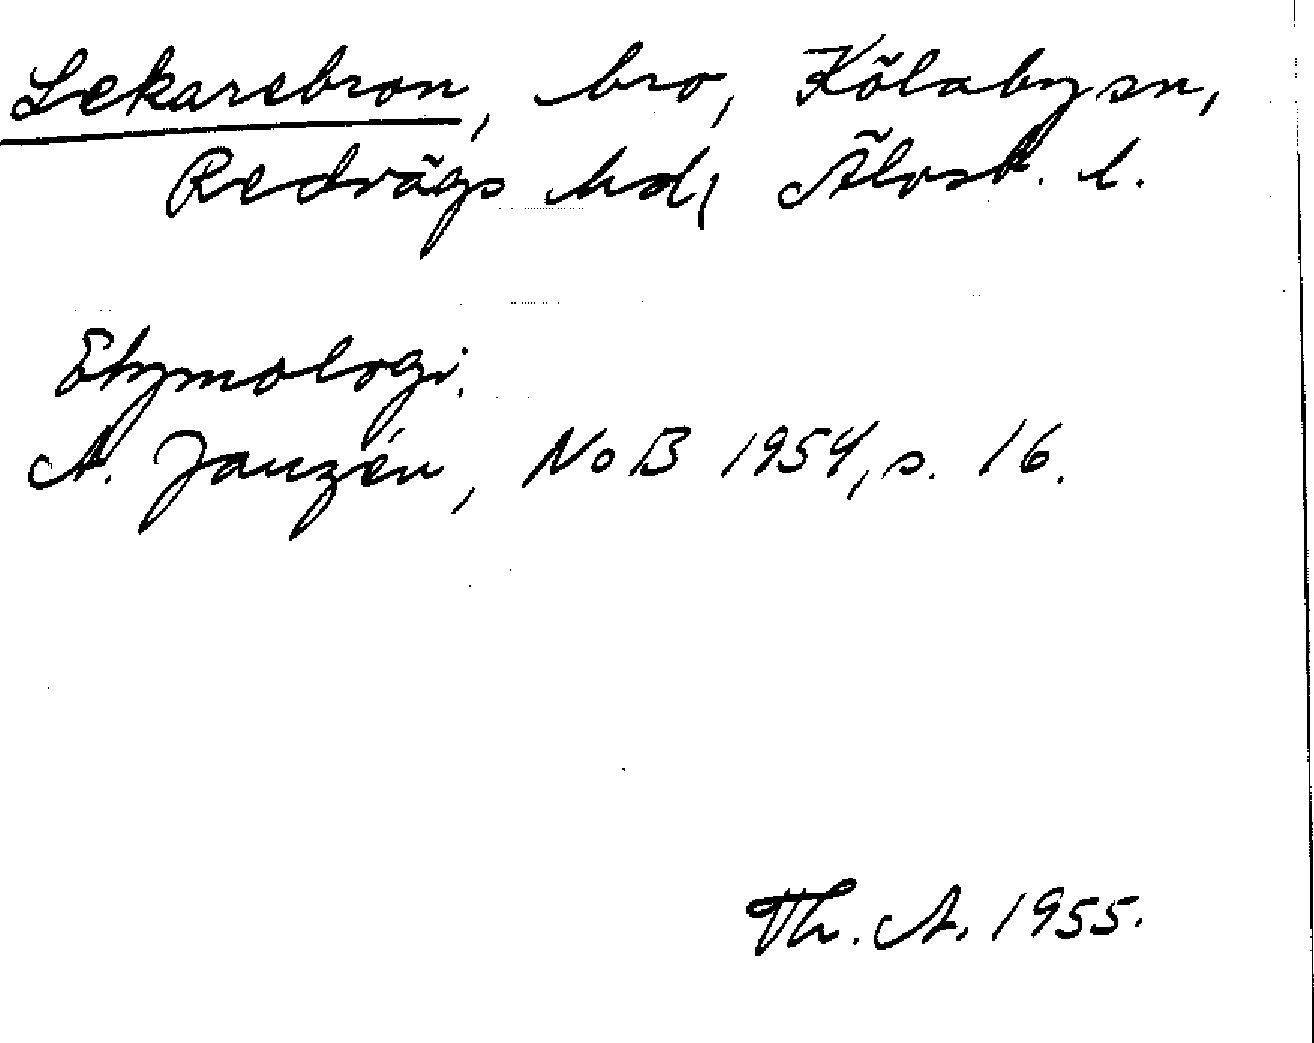 Lekarebron, bro, Kölaby sn,
Redvägs hd, Älvsb. l.
Etymologi.
A. Janzén, NoB 1954, s. 16.
Th. A. 1955.